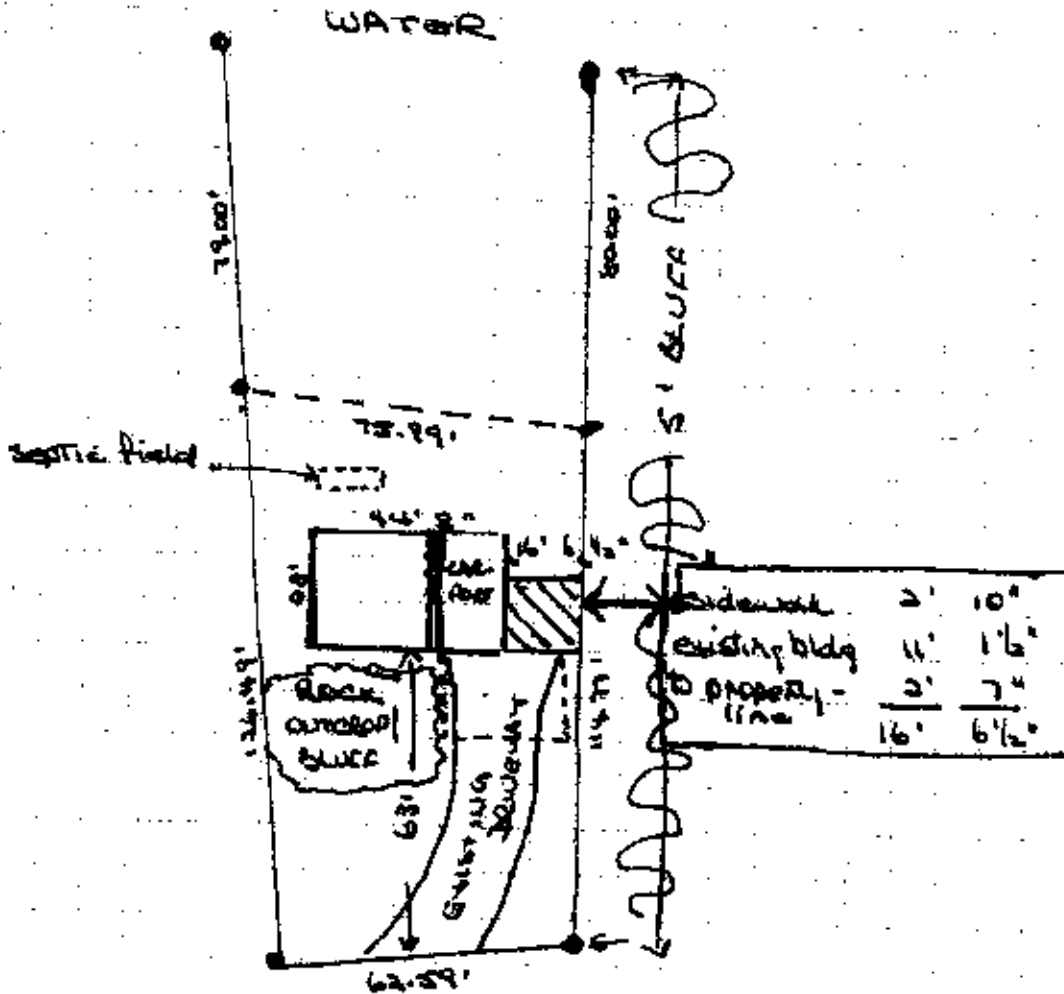 WATER
78.00'
80.00'
5' BLUFF
75.89'
septic field
CAR-
PORT
16' 6 1/2"
Sidewalk 2' 10"
existing bldg 11' 1 1/2"
to property- 2' 7"
line
16' 6 1/2"
ROCK
OUTCROP/
BLUFF
63'
EXISTING
DRIVEWAY
62.59'